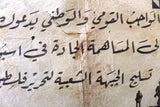 الواجب القومي والوطني يدعوك
إلى المساهمة الجادة في
تسليح الجبهة الشعبية لتحرير فلسطين